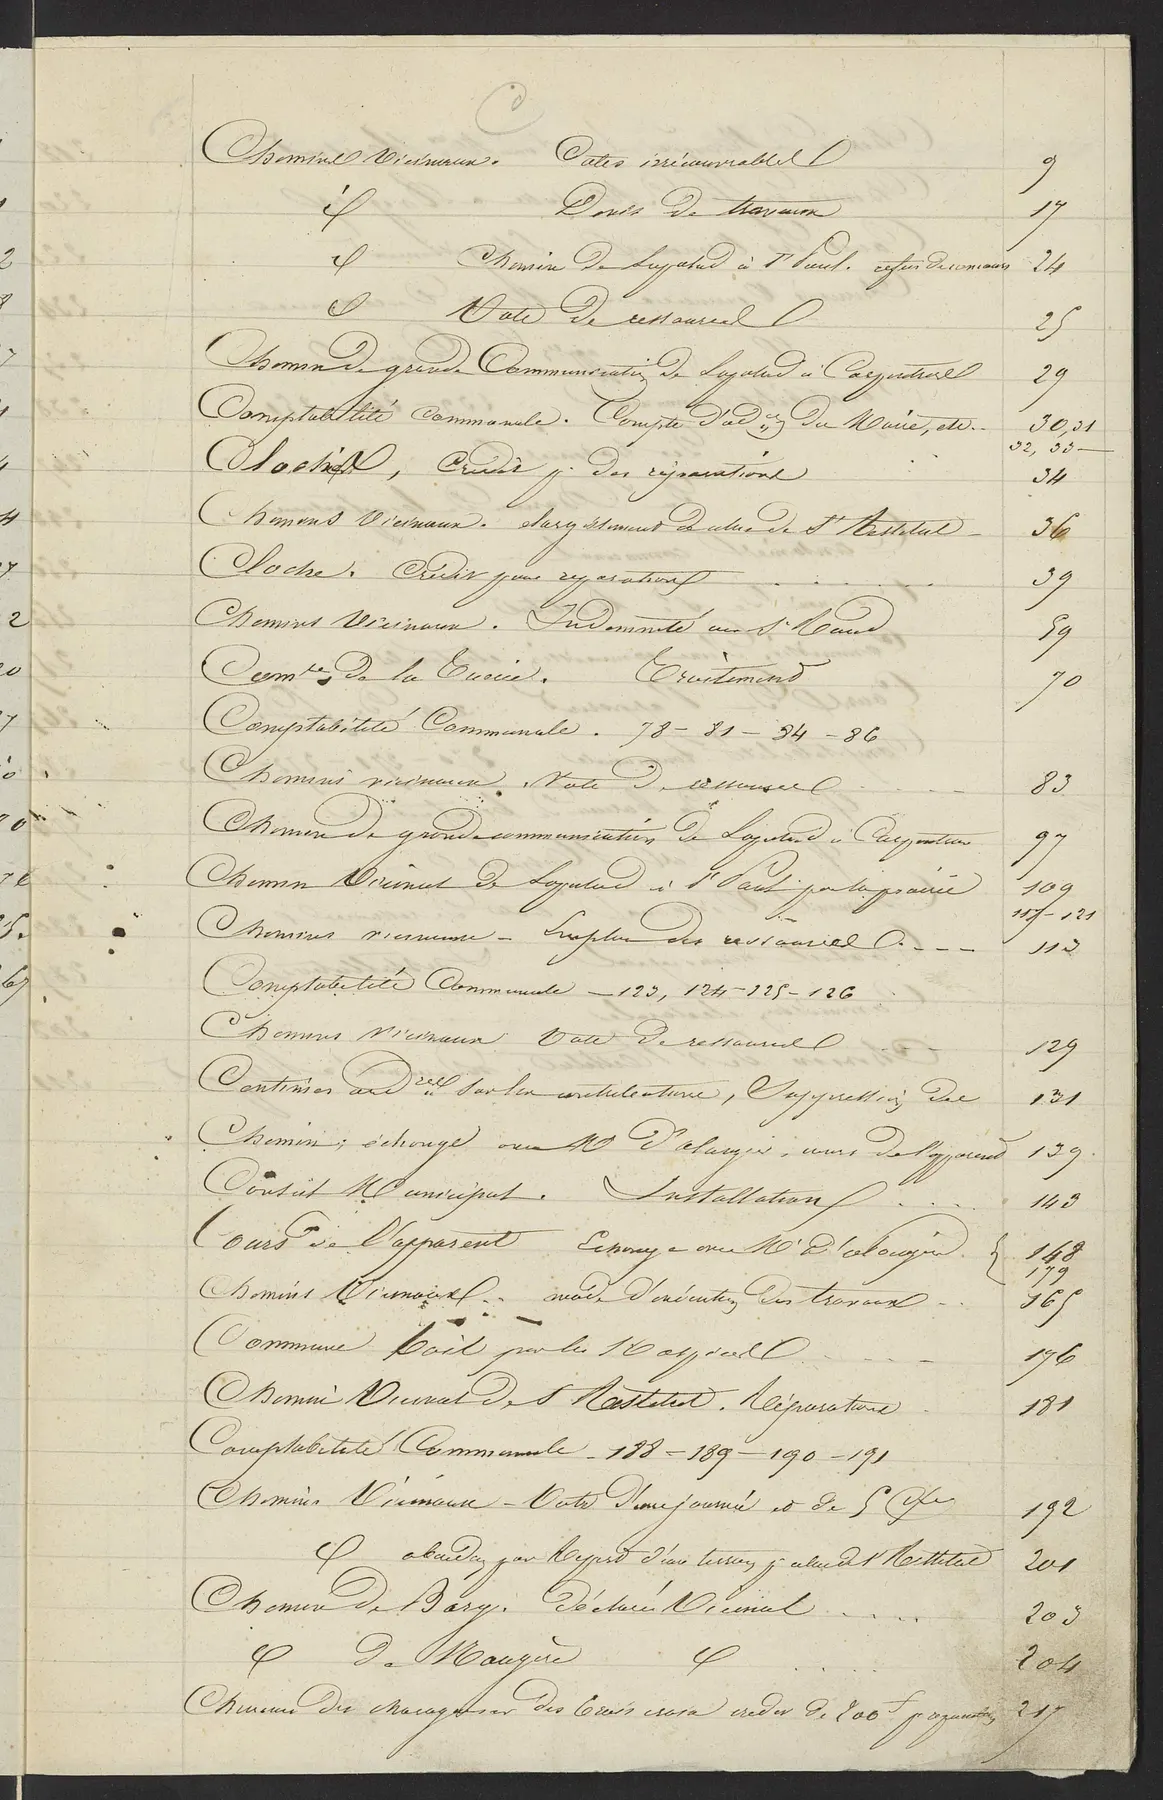 C
Chemins Vicinaux. Cotes irrécouvrables 9
d° Devis de travaux 17
d° Chemin de Lapalud à St Paul. refus de concours 24
d° Vote de ressources 25
Chemin de grande Communication de Lapalud à 29
Comptabilité communale. Compte d'ad on du Maire, etc. 30, 31
32, 33
Cloches, Crédit pr des réparations 34
Chemins Vicinaux. élargissement de celui de St Restitut 36
Cloche. Crédit pour réparations 39
Chemins Vicinaux. Indemnité au Sr 59
de la Mairie. Traitement 70
Comptabilité Communale. 78 - 81 - 84 - 86
Chemins vicinaux. Vote de ressources 83
Chemin de grande communication de Lapalud à 97
Chemin Vicinal de Lapalud à St Paul par la prairie 109
117 - 121
Chemins vicinaux - Emploi des ressources 113
Comptabilité Communale - 123, 124 - 125 - 126
Chemins Vicinaux Vote de ressources 129
Centimes sur les , Suppression des 131
Chemin; échange avec Mr d'alauzier, cours de l'apparent 139
Conseil Municipal. Installation 143
Cours de l'apparent Echange avec Mr d'alauzier 148
179
Chemins Vicinaux. mode d'exécution des travaux 165
Commune 176
Chemin Vicinal de St Restitut. Réparations 181
Comptabilité Communale - 188 - 189 - 190 - 191
Chemins Vicinaux - Vote d'une journée et de 5 Cmes 192
d° abandon par d'un terrain pr celui de St Restitut 201
Chemin de Bary. déclaré Vicinal 203
d° de d° 204
Chemin des des trois crédit de 200 f 217